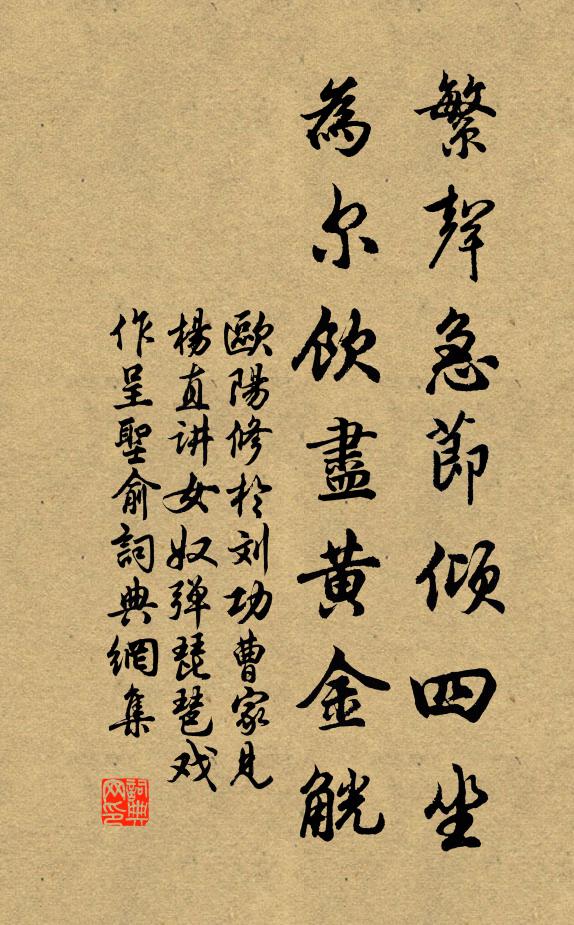 繁聲急節傾四坐
為尔飲盡黄金觥
歐陽修於刘功曹家見
楊直讲女奴弹琵琶戏
作呈聖俞詞典網集
詞典网印